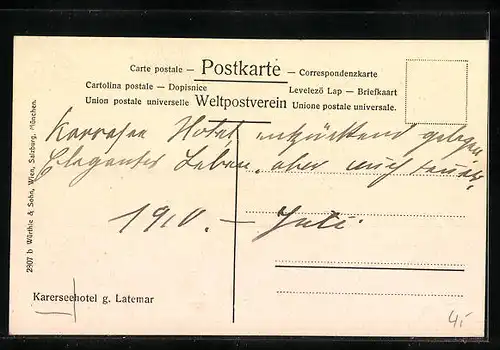 Carte postale — Postkarte — Correspondenzkarte
Cartolina postale — Dopisnice Levelező Lap — Briefkaart
Union postale universelle Weltpostverein Unione postale universale.
Karersee Hotel entzückend gelegen,
Elegantes Leben, aber auch teuer,
1910. — Juli.
2907 b Würthle & Sohn, Wien, Salzburg, München.
Karerseehotel g. Latemar
4,-